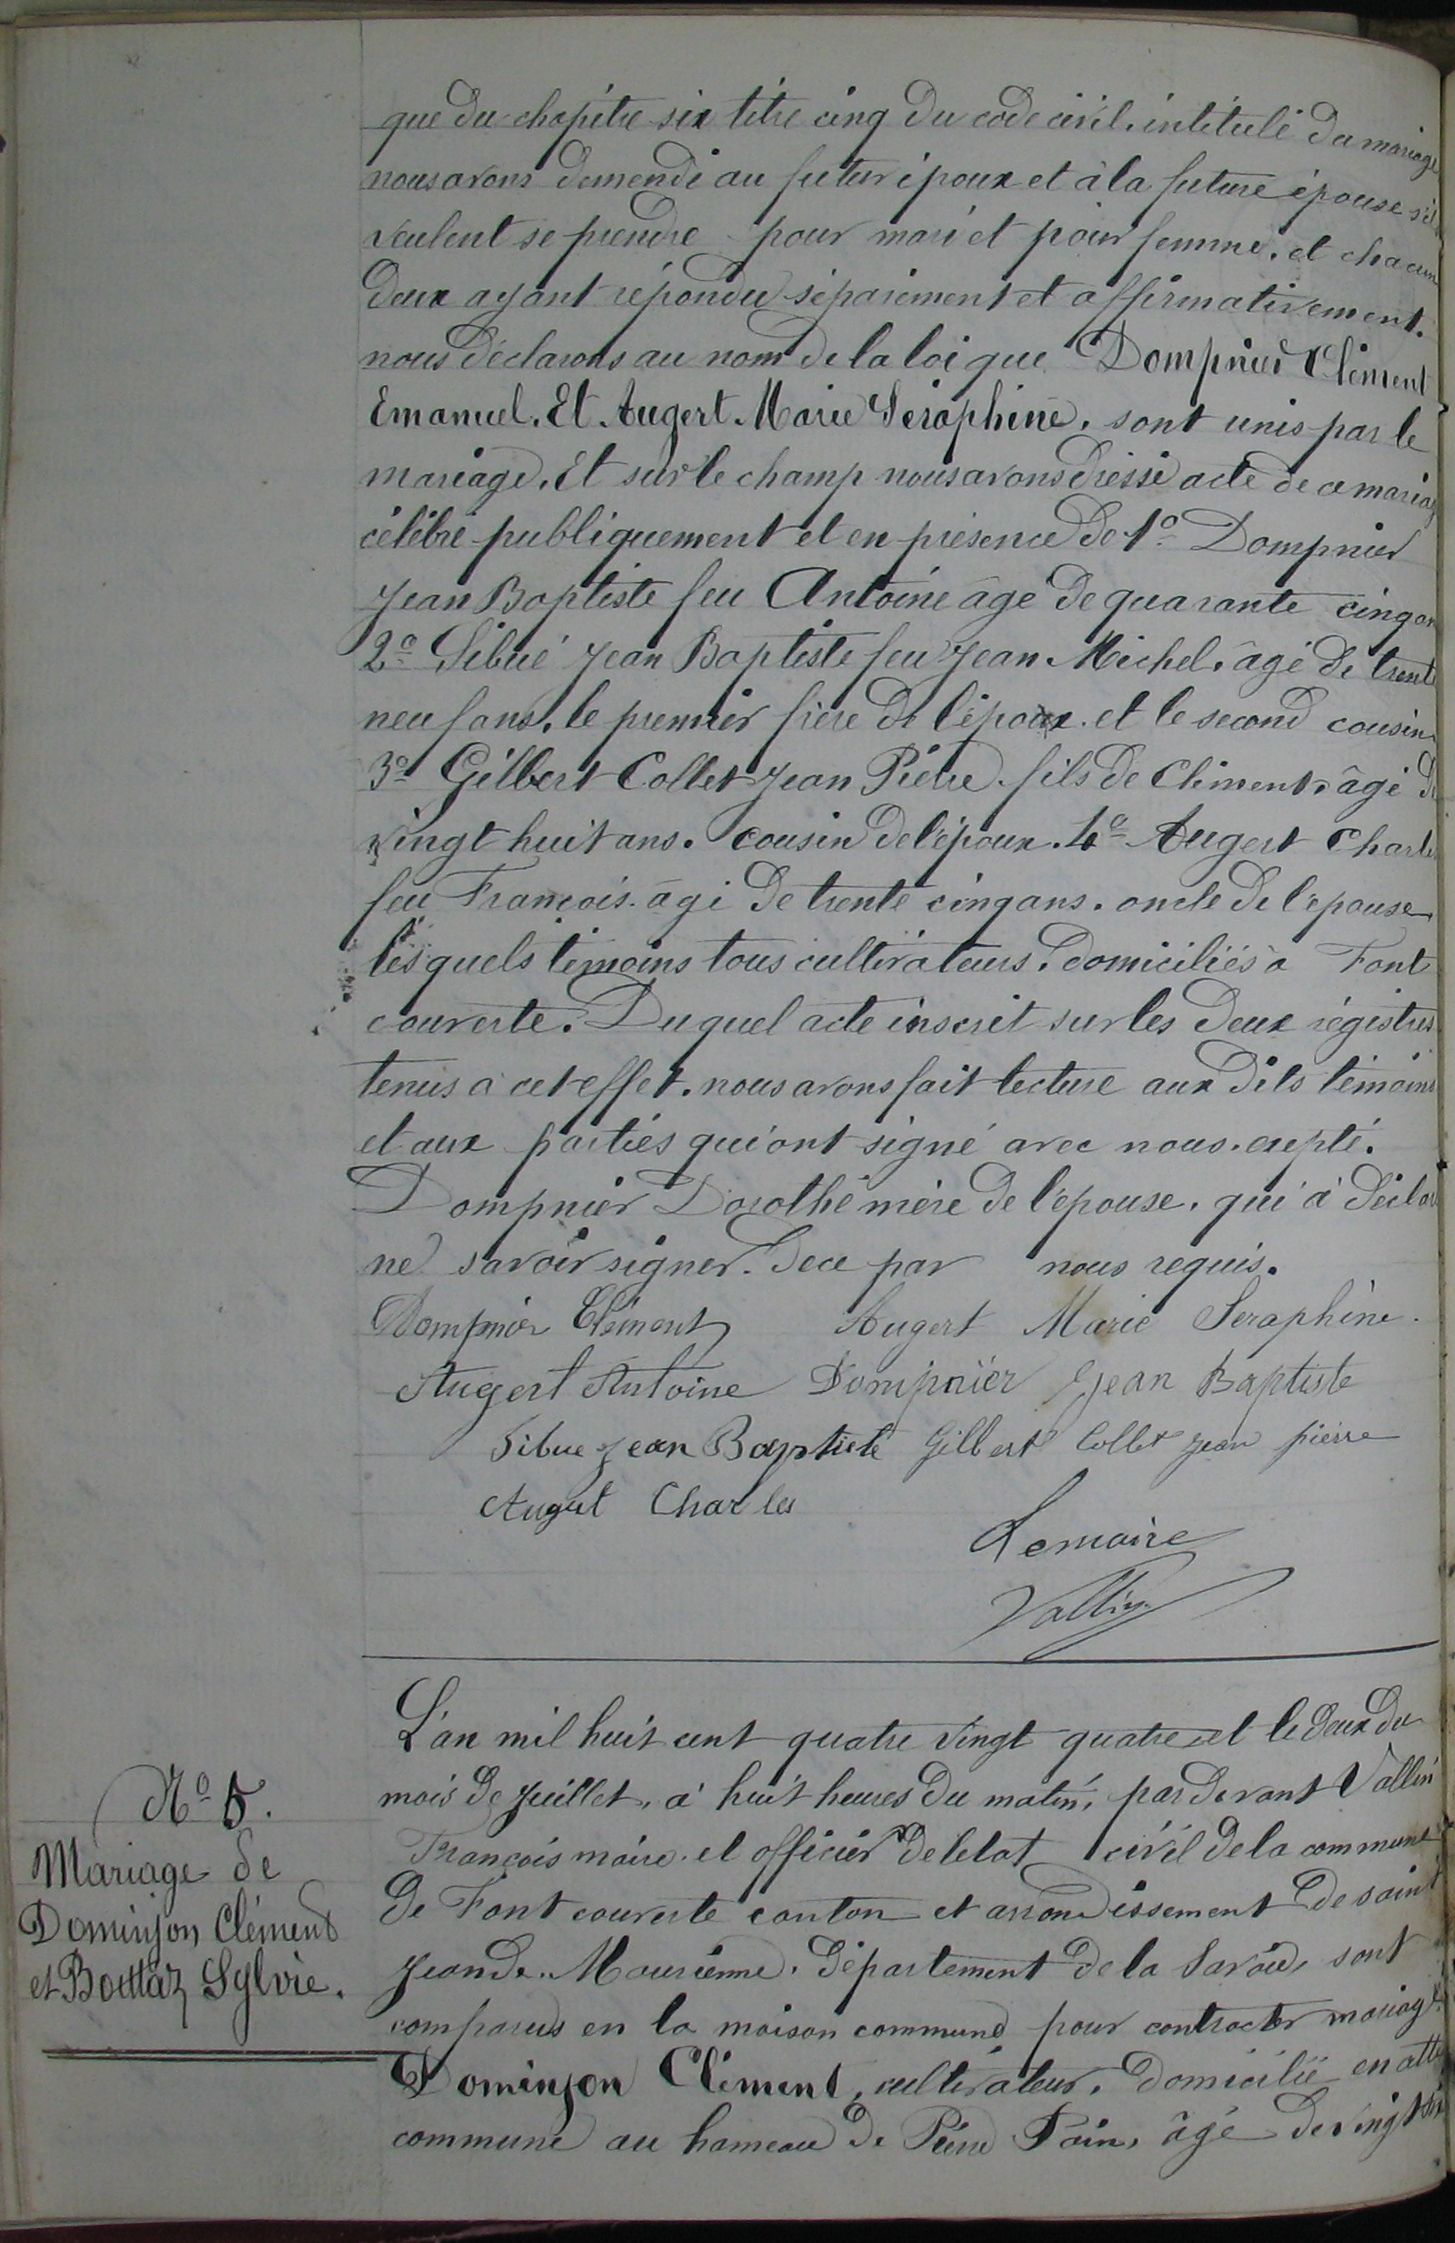 que du chapitre six titre cinq du code civil. intitulé du mariage
nous avons demendé au futur époux et à la future épouse s'il
veulent se prendre pour mari et pour femme. et chacun
deux ayant répondu séparément et affirmativement.
nous déclarons au nom de la loi que Dompnier Clément
Emanuel. Et Augert Marie Séraphine. sont unis par le
mariage. Et sur le champ nous avons dressé acte de ce mariag
célébré publiquement et en présence de 1º Dompnier
Jean Baptiste feu Antoine âgé de quarante cinq an
2º Sibué Jean Baptiste feu Jean Michel. âgé de trente
neuf ans. le premier frère de l'époux. et le second cousin
3º Gilbert Collet Jean Pierre. fils de Clément. âgé de
vingt huit ans. cousin de l'époux. 4º Augert Charles
feu François. âgé de trente cinq ans. oncle de l'épouse
les quels témoins tous cultivateurs. domiciliés à Font
couverte. Du quel acte inscrit sur les deux régistres
tenus à cet effet. nous avons fait lecture aux dits témoins
et aux parties qui ont signé avec nous. exepté.
Dompnier Dorothé mère de l'épouse. qui à décla
ne savoir signer. de ce par nous requis.
Dompnier Clément Augert Marie Seraphine.
Augert Antoine Dompnier Jean Baptiste
Sibue Jean Baptiste Gilbert Collet jean pierre
Augert Charles
Lemaire
Vallin
Nº 5.
Mariage de
Dominjon Clément
et Bouttaz Sylvie.
L'an mil huit cent quatre vingt quatre et le deux du
mois de Juillet. à huit heures du matin, par devant Vallin
François maire et officier de l'etat civil de la commune
de Font couverte canton et arrondissement de saint
Jean de Maurienne. département de la Savoie, sont
comparus en la maison commune pour contracter mariage.
Dominjon Clément, cultivateur, domicilié en cette
commune au hameau de Pierre Pain, âgé de vingt six